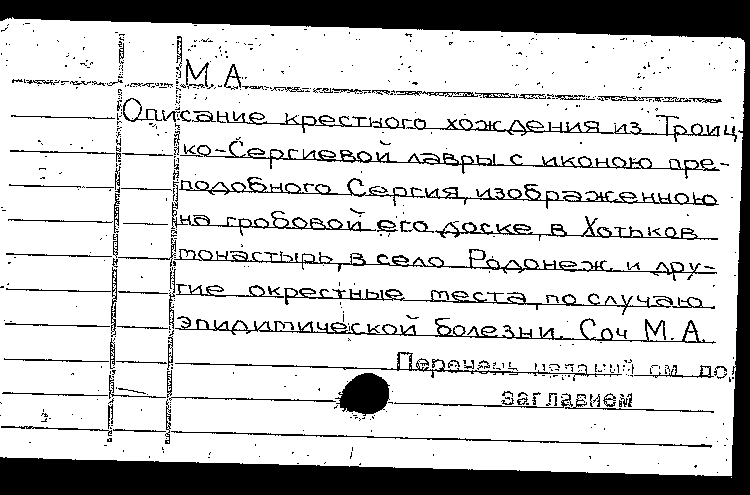 М. А.
Описание крестного хождения из Троиц-
ко-Сергиевой лавры с иконою пре-
подобного Сергия, изображенною
на гробовой его доске, в Хотьков
монастырь, в село Родонеж и дру-
гие окрестные места, по случаю
эпидимической болезни. Соч М. А.
Перечень изданий см. по
заглавием